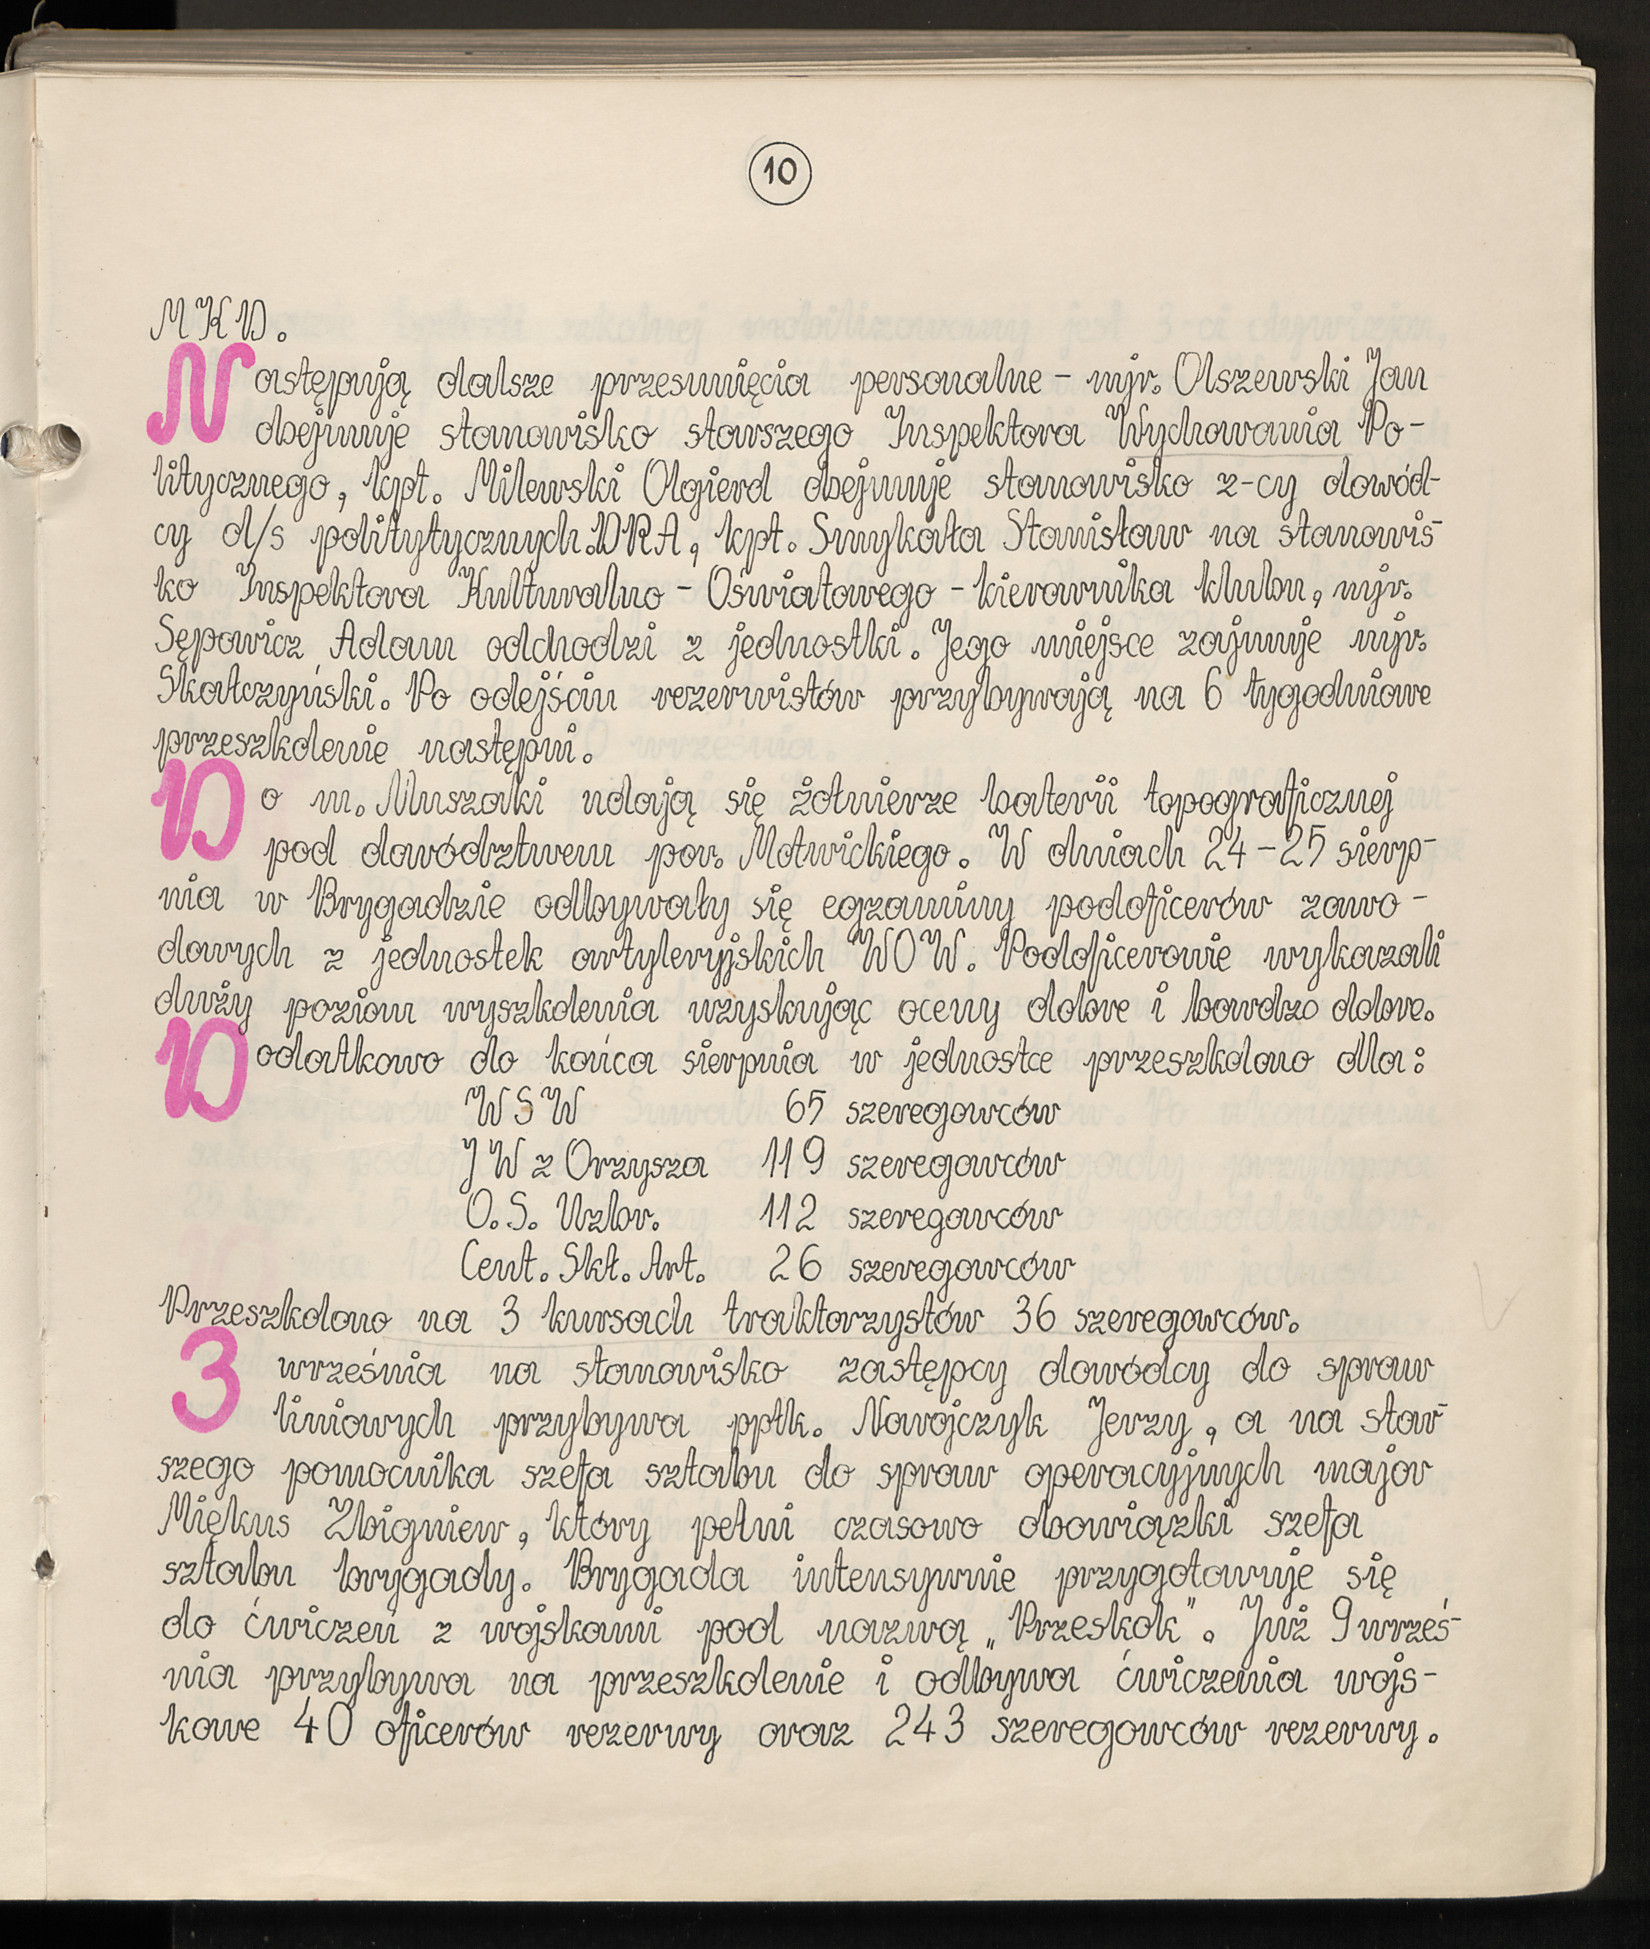 10
MKD.
Następują dalsze przesunięcia personalne - mjr. Olszewski Jan
obejmuje stanowisko starszego Inspektora Wychowania Po-
litycznego, kpt. Milewski Olgierd obejmuje stanowisko z-cy dowód-
cy d/s politytycznych.DRA, kpt. Smykała Stanisław na stanowis-
ko Inspektora Kulturalno - Oświatowego - kierownika klubu, mjr.
Sępowicz Adam odchodzi z jednostki. Jego miejsce zajmuje mjr.
Skałczyński. Po odejściu rezerwistów przybywają na 6 tygodniowe
przeszkolenie następni.
Do m. Muszaki udają się żołnierze baterii topograficznej
pod dowództwem por. Motwickiego. W dniach 24-25 sierp-
nia w Brygadzie odbywały się egzaminy podoficerów zawo-
dowych z jednostek artyleryjskich WOW. Podoficerowie wykazali
duży poziom wyszkolenia uzyskując oceny dobre i bardzo dobre.
Dodatkowo do końca sierpnia w jednostce przeszkolono dla:
WSW 65 szeregowców
JW z Orzysza 119 szeregowców
O.S. Uzbr. 112 szeregowców
Cent. Skł. Art. 26 szeregowców
Przeszkolono na 3 kursach traktorzystów 36 szeregowców.
3 września na stanowisko zastępcy dowódcy do spraw
liniowych przybywa ppłk. Nawojczyk Jerzy, a na star-
szego pomocnika szefa sztabu do spraw operacyjnych major
Miękus Zbigniew, który pełni czasowo obowiązki szefa
sztabu brygady. Brygada intensywnie przygotowuje się
do ćwiczeń z wojskami pod nazwą „Przeskok". Już 9 wrześ-
nia przybywa na przeszkolenie i odbywa ćwiczenia wojs-
kowe 40 oficerów rezerwy oraz 243 szeregowców rezerwy.